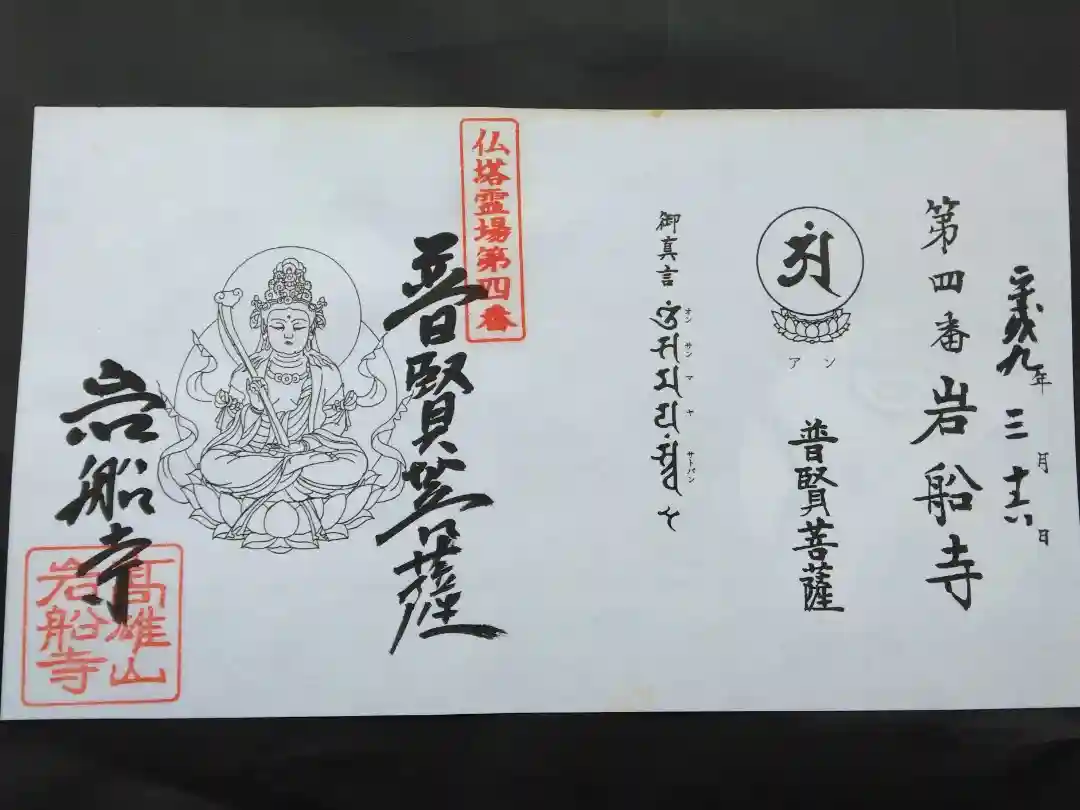 平成九年三月十六日
第四番岩船寺
アン
普賢菩薩
御真言
オン サン マ ヤ サトバン
仏塔霊場第四番
普賢菩薩
岩船寺
髙雄山
岩船寺